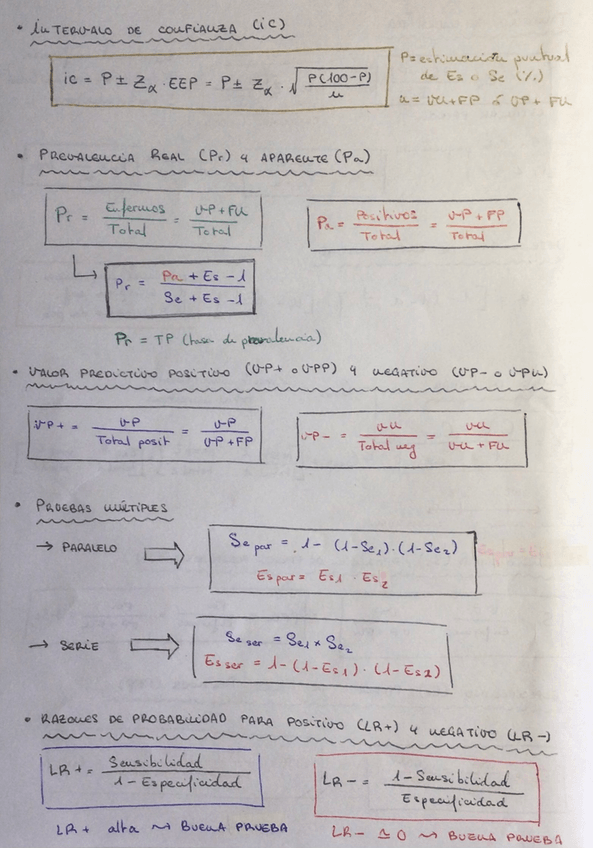 • INTERVALO DE CONFIANZA (IC)
ic = P ± Zα · EEP = P ± Zα · √(P(100-P)/n)
P = estimación puntual
de Es o Se (%)
n = VN + FP ó VP + FN
• PREVALENCIA REAL (Pr) y APARENTE (Pa)
Pr = Enfermos/Total = VP + FN/Total
Pa = Positivos/Total = VP + FP/Total
Pr = Pa + Es - 1/Se + Es - 1
Pr = TP (tasa de prevalencia)
• VALOR PREDICTIVO POSITIVO (VP+ o VPP) y NEGATIVO (VP- o VPN)
VP+ = VP/Total posit = VP/VP + FP
VP- = VN/Total neg = VN/VN + FN
• PRUEBAS MÚLTIPLES
→ PARALELO
Se par = 1 - (1-Se1) · (1-Se2)
Es par = Es1 · Es2
→ SERIE
Se ser = Se1 x Se2
Es ser = 1 - (1-Es1) · (1-Es2)
• RAZONES DE PROBABILIDAD PARA POSITIVO (LR+) y NEGATIVO (LR-)
LR+ = Sensibilidad/1 - Especificidad
LR- = 1 - Sensibilidad/Especificidad
LR+ alta ⇝ BUENA PRUEBA
LR- ≃ 0 ⇝ BUENA PRUEBA